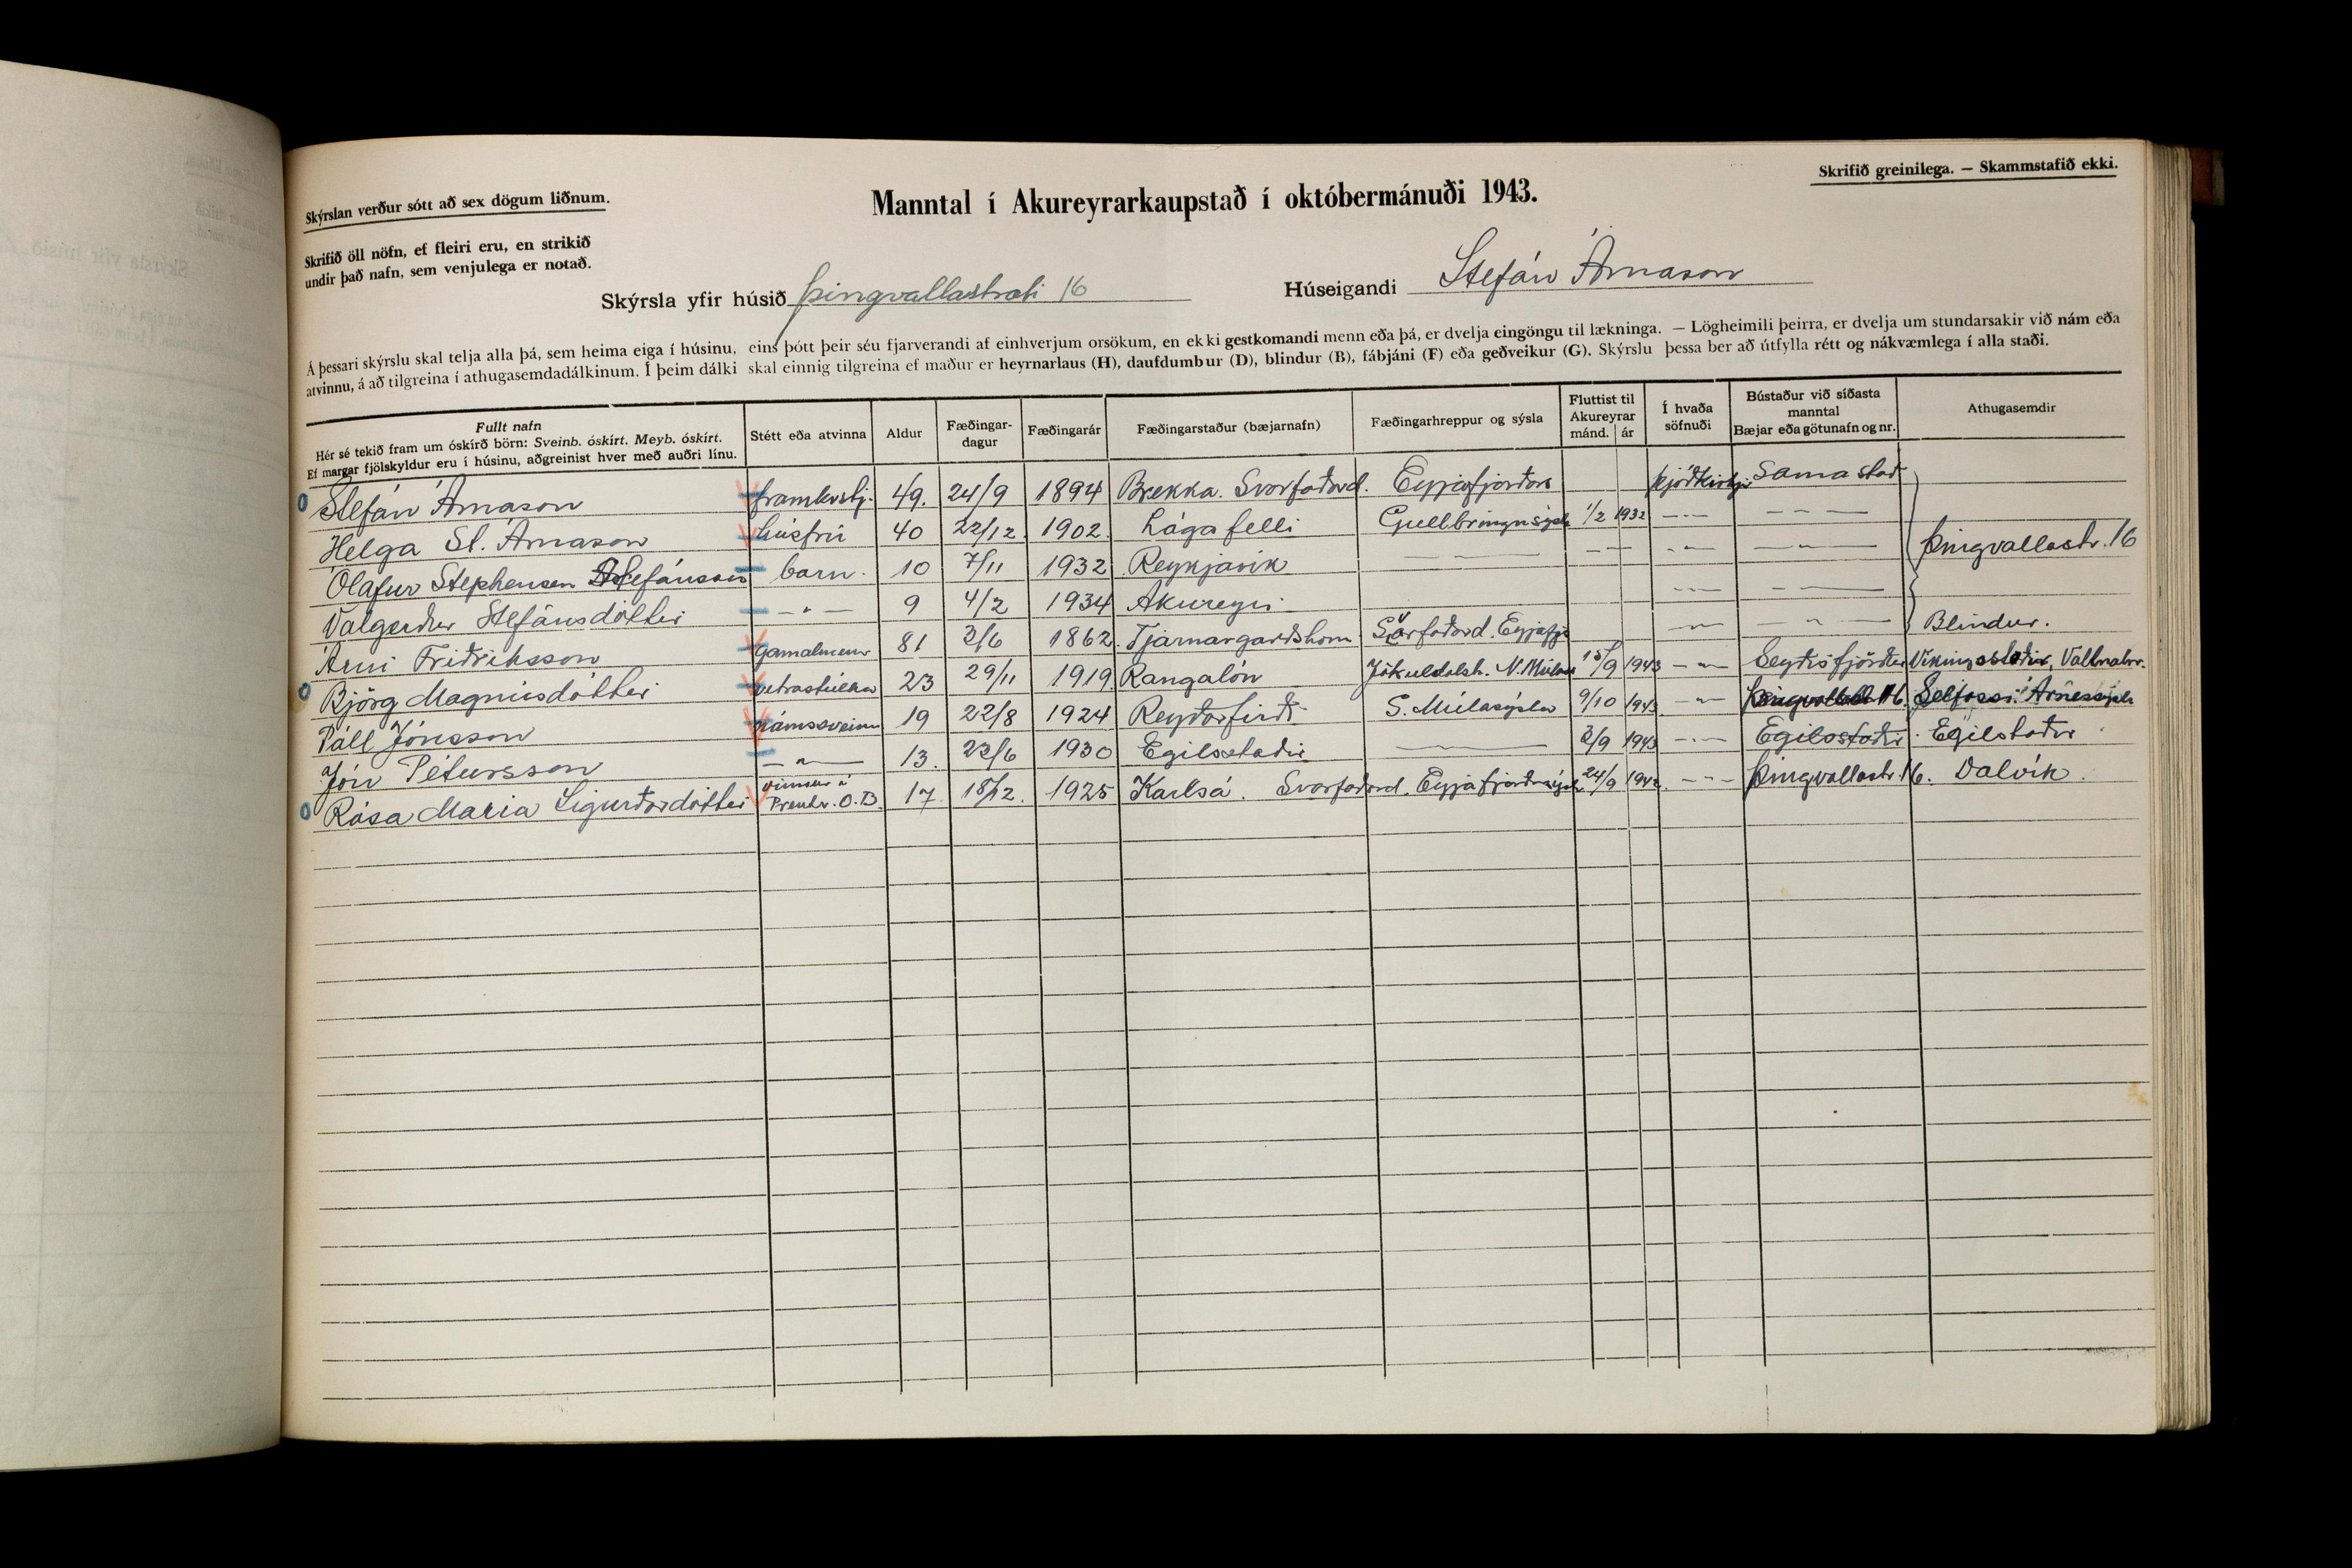 Skýrslan verður sótt að sex dögum liðnum.
Manntal í Akureyrarkaupstað í októbermánuði 1943.
Skrifið greinilega. — Skammstafið ekki.
Skrifið öll nöfn, ef fleiri eru, en strikið
undir það nafn, sem venjulega er notað.
Skýrsla yfir húsið Þingvallastræti 16 Húseigandi Stefán Árnason
Á þessari skýrslu skal telja alla þá, sem heima eiga í húsinu, eins þótt þeir séu fjarverandi af einhverjum orsökum, en ekki gestkomandi menn eða þá, er dvelja eingöngu til lækninga. — Lögheimili þeirra, er dvelja um stundarsakir við nám eða
atvinnu, á að tilgreina í athugasemdadálkinum. Í þeim dálki skal einnig tilgreina ef maður er heyrnarlaus (H), daufdumbur (D), blindur (B), fábjáni (F) eða geðveikur (G). Skýrslu þessa ber að útfylla rétt og nákvæmlega í alla staði.
Fullt nafn
Hér sé tekið fram um óskírð börn: Sveinb. óskírt. Meyb. óskírt.
Ef margar fjölskyldur eru í húsinu, aðgreinist hver með auðri línu.
Stétt eða atvinna
Aldur
Fæðingar-
dagur
Fæðingarár
Fæðingarstaður (bæjarnafn)
Fæðingarhreppur og sýsla
Fluttist til
Akureyrar
mánd. ár
Í hvaða
söfnuði
Bústaður við síðasta
manntal
Bæjar eða götunafn og nr.
Athugasemdir
Stefán Árnason framkvstj. 49. 24/9 1894 Brekka. Svarfaðard. Eyjafjörður Þjóðkirkju Sama stað
Helga St. Árnason húsfrú 40 22/12 1902 Lágafelli Gullbringusýsla 1/2 1932 — " — — " —
Ólafur Stephensen Stefánsson barn. 10 7/11 1932 Reykjavík — — — — " — — " — Þingvallastr. 16
Valgerður Stefánsdóttir — " — 9 4/2 1934 Akureyri — — " — — " —
Árni Friðriksson gamalmenni 81 2/6 1862 Tjarnargarðshorn Svarfaðard. Eyjafj. — " — — " — Blindur.
Björg Magnúsdóttir vetrastúlka 23 29/11 1919 Rangalón Jökuldalshr. N. Múlas 15/9 1943 — " — Seyðisfjörður Víkingsstaðir, Vallnahr.
Páll Jónsson námssveinn 19 22/8 1924 Reyðarfirði S. Múlasýsla 9/10 1943 — " — 16. Selfossi Árnessýsla
Jón Pétursson — " — 13. 23/6 1930 Egilsstaðir — 2/9 1943 — " — Egilsstaðir Egilstaðir
Rósa Maria Sigurðardóttir vinnur á Prentv. O.B. 17 18/12. 1925 Karlsá. Svarfaðard. Eyjafjarðarsýsla 24/9 1942. — " — Þingvallastr. 16. Dalvík.